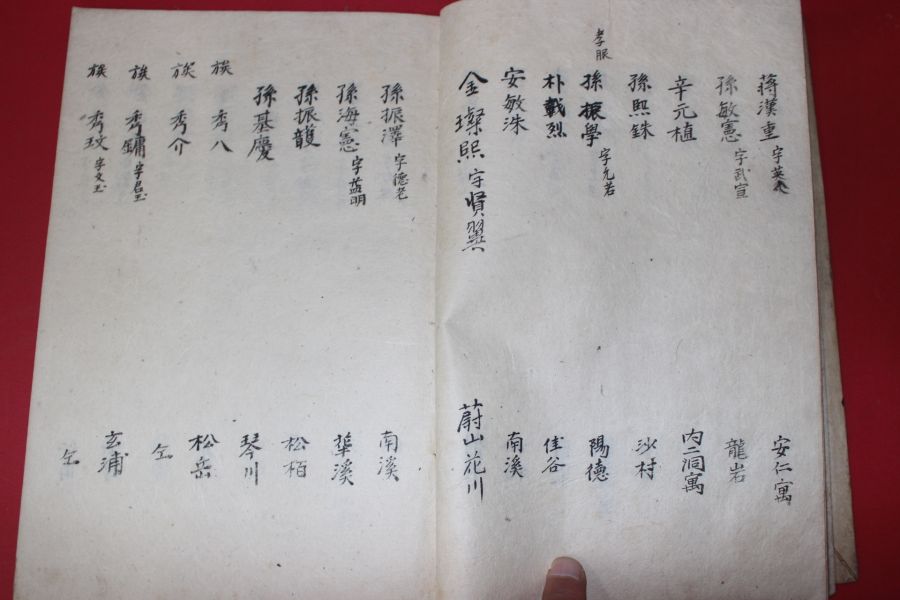 蔣漢重 字英 安仁寓
孫敏憲 字武宣 龍岩
辛元植 內二洞寓
孫熙銖 沙村
孝服 孫振學 字允若 陽德
朴載烈 佳谷
安敏洙 南溪
金璨熙 字賢翼 蔚山花川
孫振澤 字德老 南溪
孫海憲 字益明 華溪
孫振頀 松栢
孫基慶 琴川
族 秀八 松岳
族 秀介 仝
族 秀鏞 字君玉 玄浦
族 秀玟 字文玉 仝